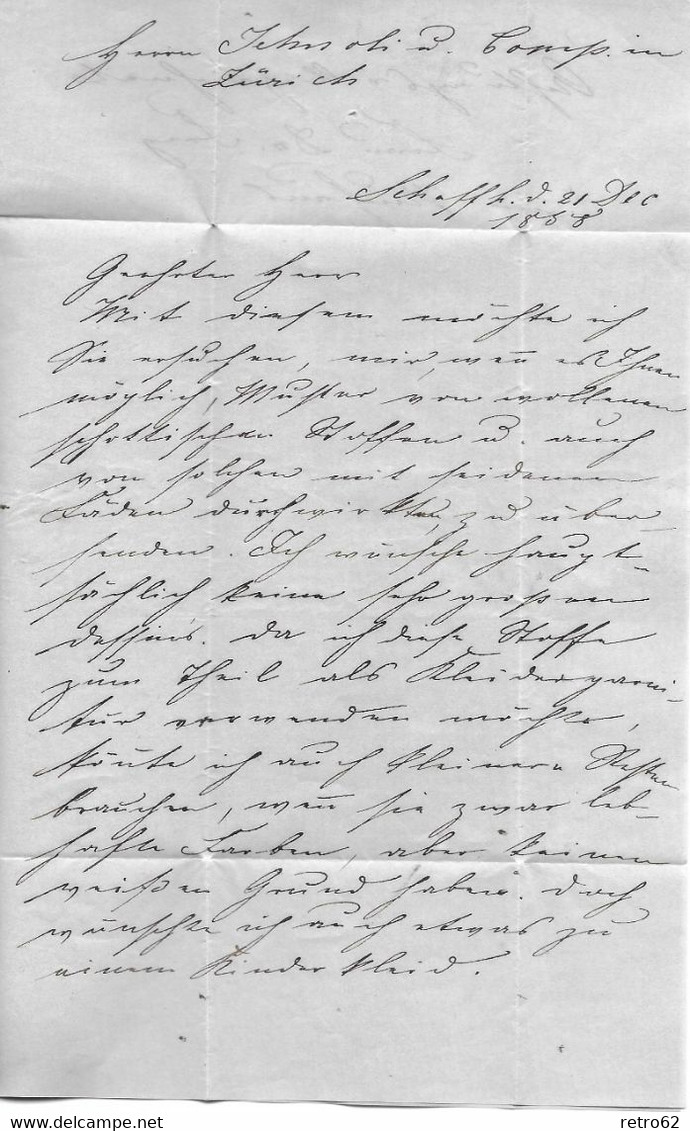 Herrn Jelmoli u. Comp. in
Zürich
Schaffh. d. 21 Dec
1868
Geehrter Herr
Mit diesem möchte ich
Sie ersuchen, mir, wen̄ es Ihnen
möglich, Muster von wollenen
schottischen Stoffen u. auch
von solchen mit seidenen
Fäden durchwirkten, zu über
senden. Ich wünsche haupt-
sächlich keine sehr grossen
dessins. Da ich diese Stoffe
zum Theil als Kleidergarni-
tur verwenden möchte,
kön̄te ich auch kleinere Resten
brauchen, wen̄ sie zwar leb-
hafte Farben, aber keinen
weißen Grund haben. Doch
wünschte ich auch etwas zu
einem Kinderkleid.
retro62